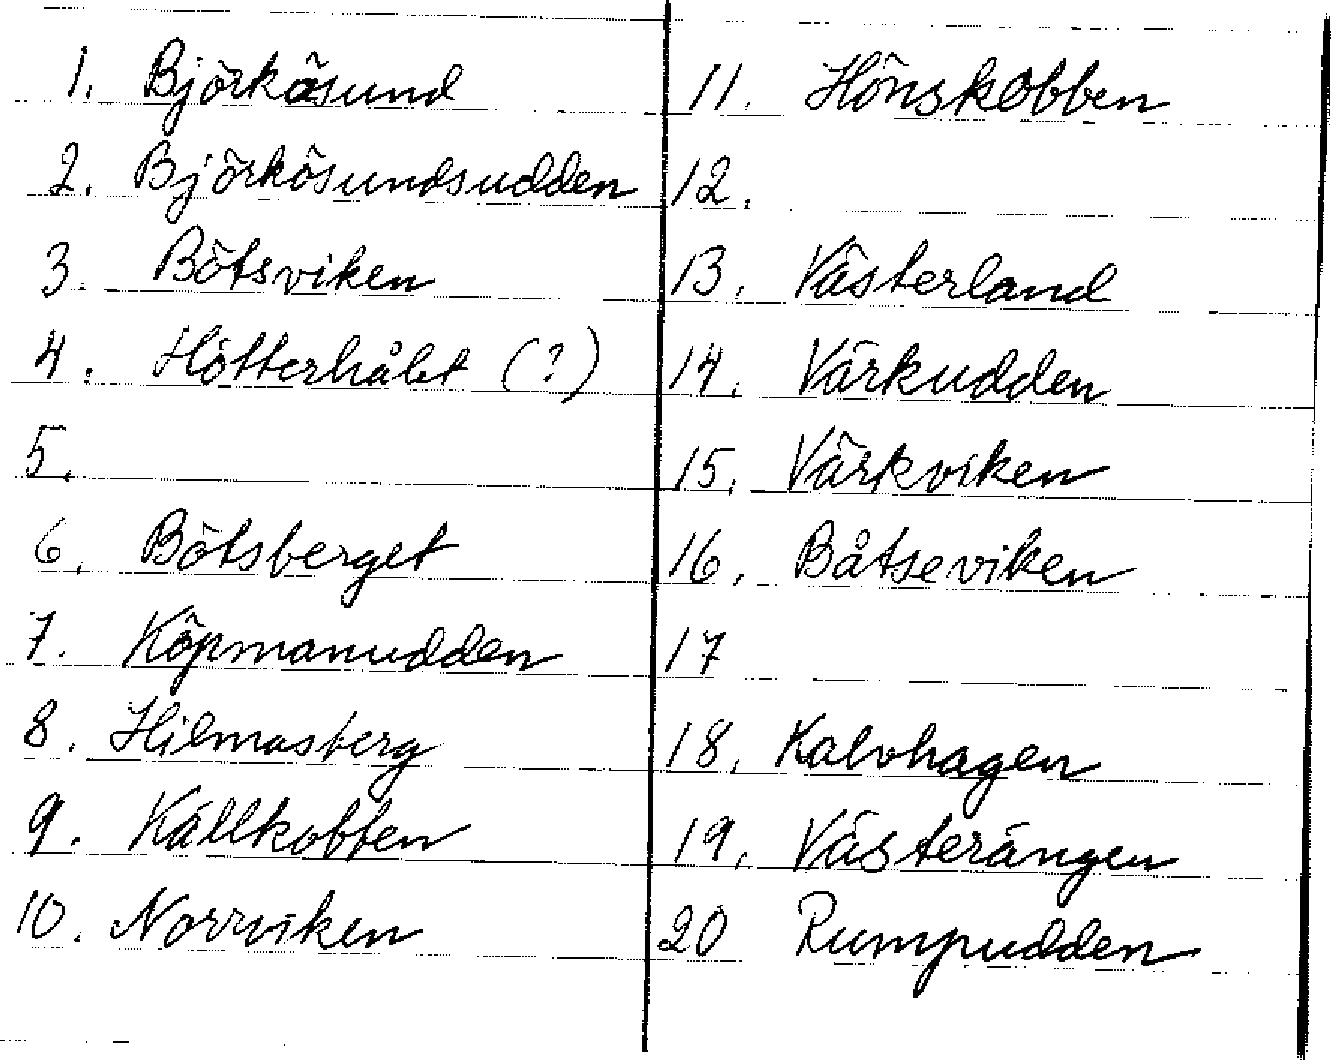 1. Björkösund
2. Björkösundsudden
3. Bötsviken
4. Hötterhålet (?)
5.
6. Bötsberget
7. Köpmanudden
8. Hilmasberg
9. Källkobben
10. Norrviken
11. Hönskobben
12.
13. Västerland
14. Värkudden
15. Värkviken
16. Båtseviken
17
18. Kalvhagen
19. Västerängen
20 Rumpudden